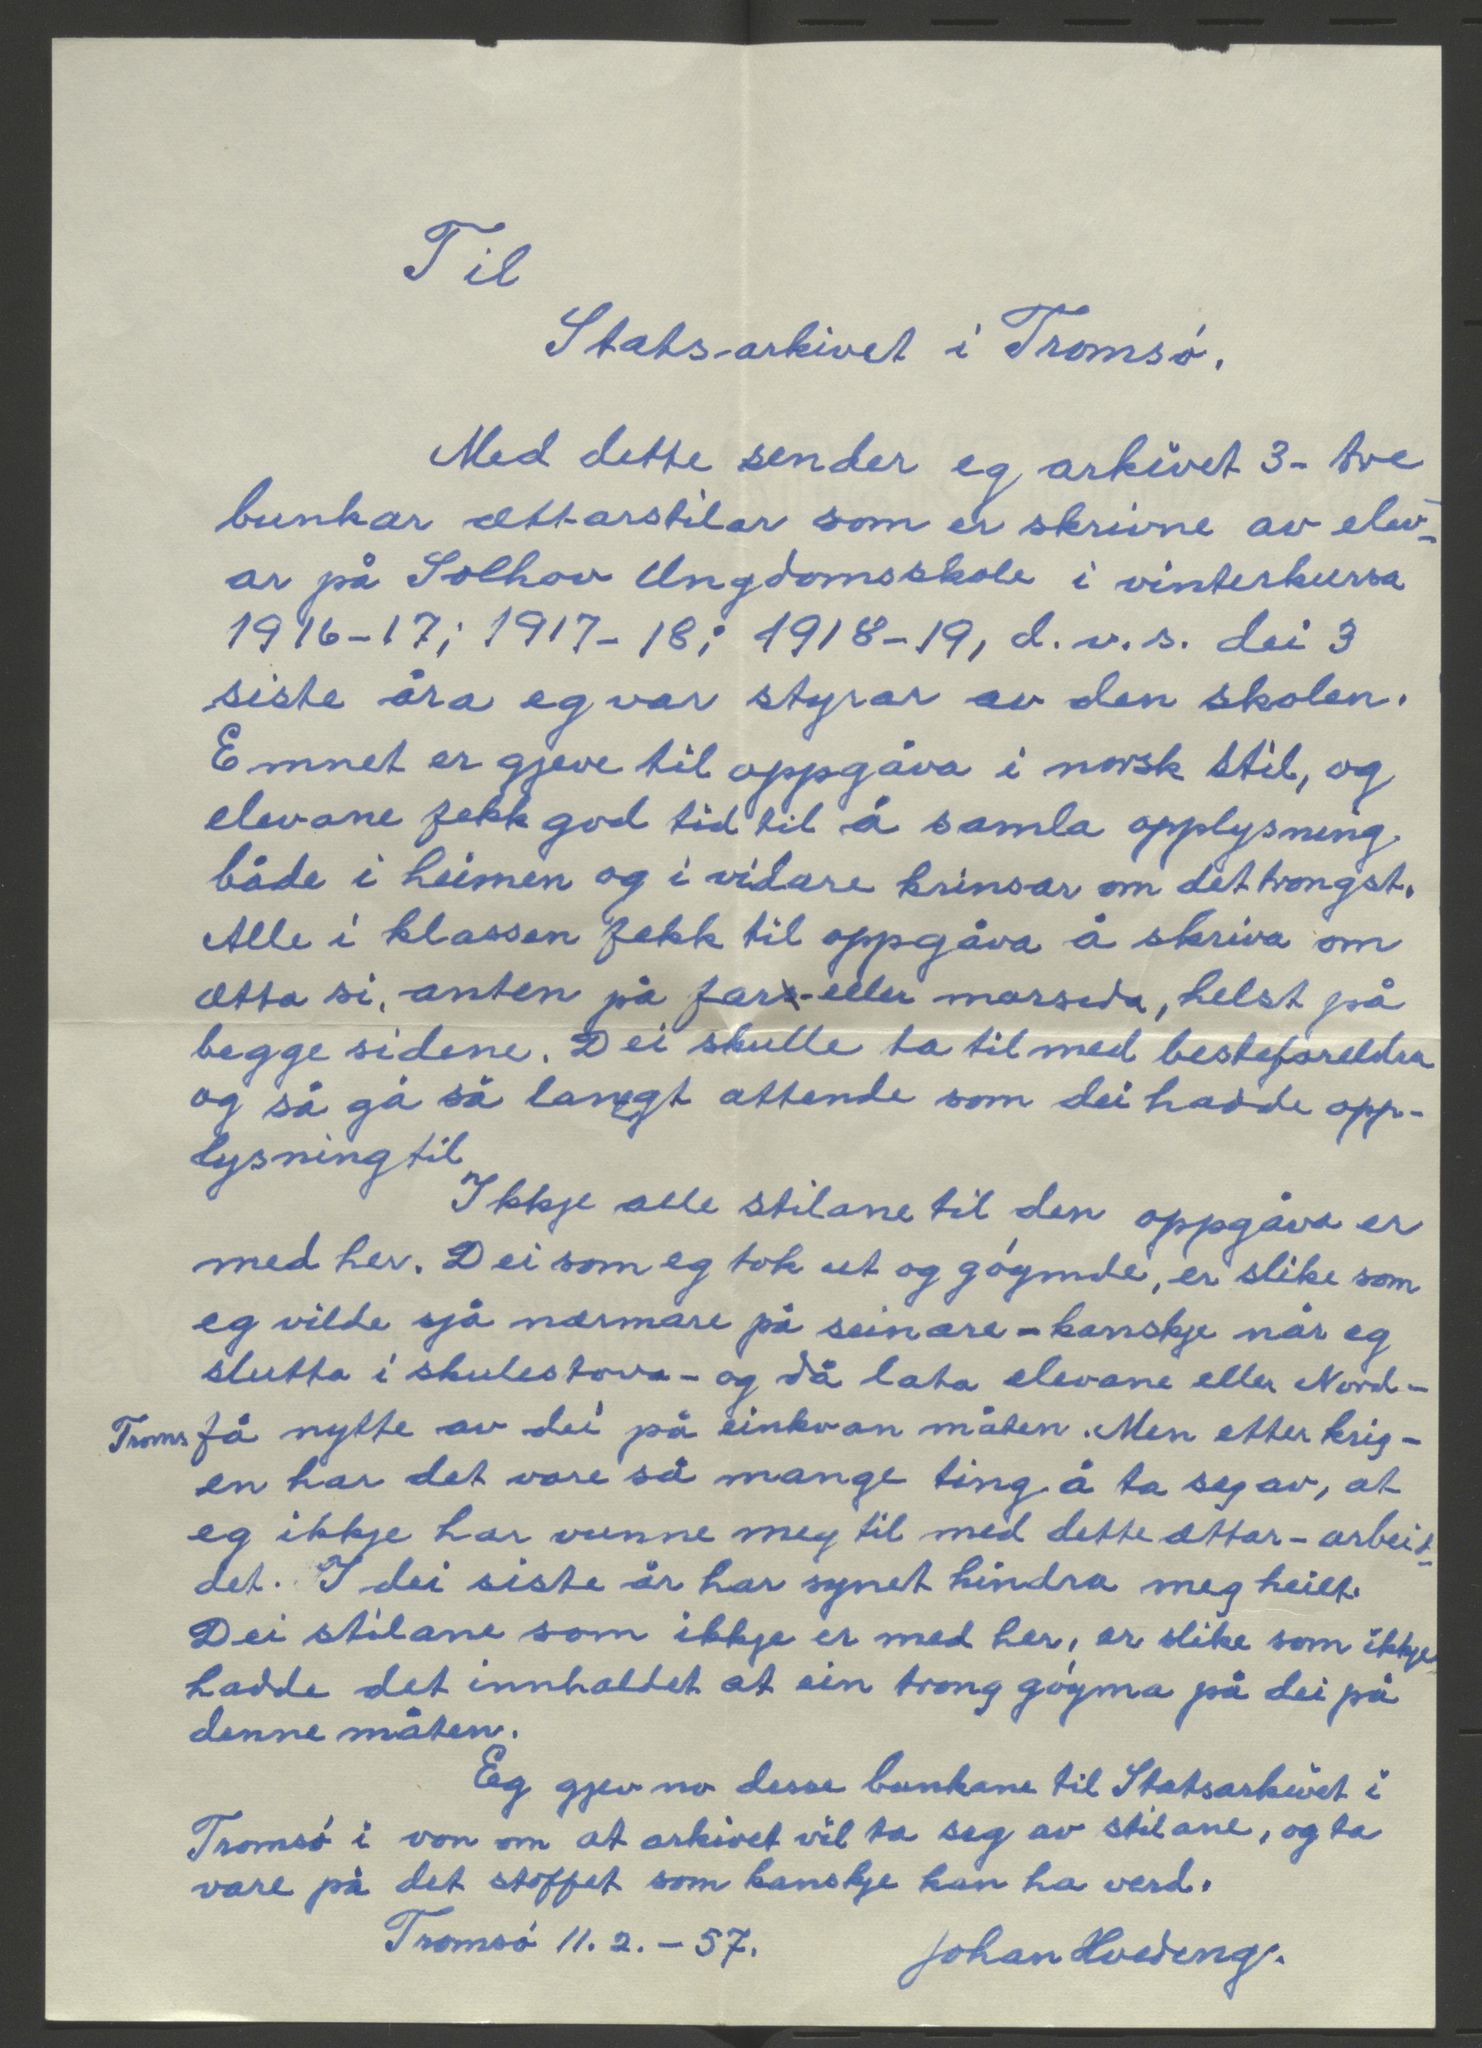 Til
Stats-arkivet i Tromsó.
Med dette sender eg arkivet 3- tre
bunkar ættarstilar som er skrivne av elev-
ar på Solhov Ungdomsskole i vinterkursa
1916-17; 1917-18; 1918-19, d.v.s. dei 3
siste åra eg var styrar av den skolen.
Emnet er gjeve til oppgåva i norsk stil, og
elevane fekk god tid til å samla opplysning.
både i heimen og i vidare krinsar om det trongst.
Alle i klassen fekk til oppgåva å skriva om
ætta si, anten på fars- eller morsida, helst på
begge sidene. Dei skulle ta til med besteforeldra
og så gå så langt attende som dei hadde opp-
lysning til
Ikkje alle stilane til den oppgåva er
med her. Dei som eg tok ut og góymde, er slike som
eg vilde sjå nærmare på seinare - kanskje når eg
slutta i skulestova - og då lata elevane eller Nord-
Troms få nytte av dei på einkvan måten. Men etter krig-
en har det vore så mange ting å ta seg av, at
eg ikkje har vunne meg til med dette ættar-arbeid-
det. I dei siste år har synet hindra meg heilt.
Dei stilane som ikkje er med her, er slike som ikkje
hadde det innhaldet at ein trong góyma på dei på
denne måten.
Eg gjev no desse bunkane til Statsarkivet i
Tromsó i von om at arkivet vil ta seg av stilane, og ta
vare på det stoffet som kanskje kan ha verd.
Tromsó 11.2.-57.
Johan Hveding.